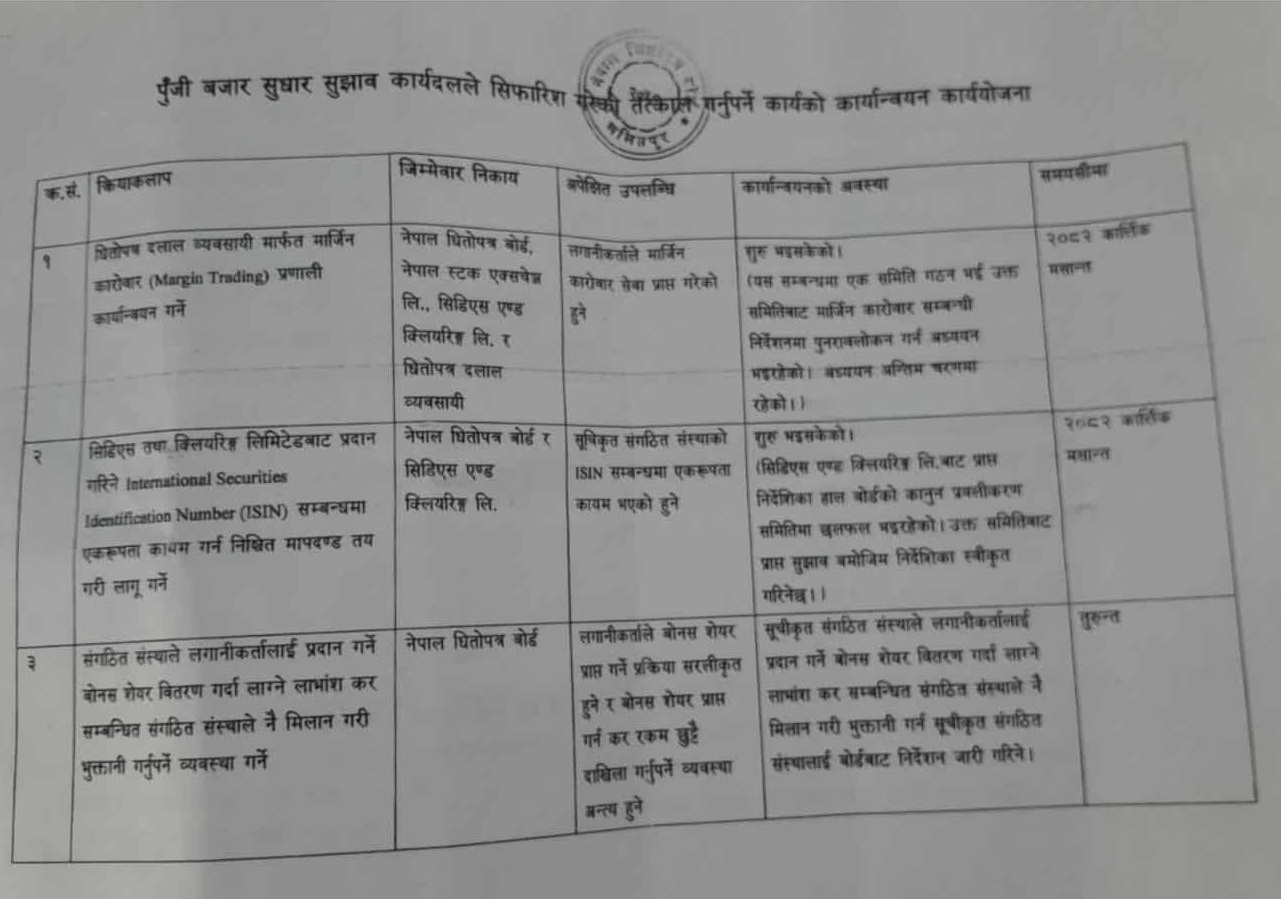 पुँजी बजार सुधार सुझाव कार्यदलले सिफारिश गरेको तत्काल गर्नुपर्ने कार्यको कार्यान्वयन कार्ययोजना
ललितपुर
क्र.सं.
क्रियाकलाप
जिम्मेवार निकाय
अपेक्षित उपलब्धि
कार्यान्वयनको अवस्था
समयसीमा
१
धितोपत्र दलाल व्यवसायी मार्फत मार्जिन
कारोबार (Margin Trading) प्रणाली
कार्यान्वयन गर्ने
नेपाल धितोपत्र बोर्ड,
नेपाल स्टक एक्सचेञ्ज
लि., सिडिएस एण्ड
क्लियरिङ्ग लि. र
धितोपत्र दलाल
व्यवसायी
लगानीकर्ताले मार्जिन
कारोबार सेवा प्राप्त गरेको
हुने
शुरु भइसकेको।
(यस सम्बन्धमा एक समिति गठन भई उक्त
समितिबाट मार्जिन कारोबार सम्बन्धी
निर्देशनमा पुनरावलोकन गर्न अध्ययन
भइरहेको। अध्ययन अन्तिम चरणमा
रहेको।)
२०८२ कार्तिक
मसान्त
२
सिडिएस तथा क्लियरिङ्ग लिमिटेडबाट प्रदान
गरिने International Securities
Identification Number (ISIN) सम्बन्धमा
एकरूपता कायम गर्न निश्चित मापदण्ड तय
गरी लागू गर्ने
नेपाल धितोपत्र बोर्ड र
सिडिएस एण्ड
क्लियरिङ्ग लि.
सूचिकृत संगठित संस्थाको
ISIN सम्बन्धमा एकरूपता
कायम भएको हुने
शुरु भइसकेको।
(सिडिएस एण्ड क्लियरिङ्ग लि.बाट प्राप्त
निर्देशिका हाल बोर्डको कानुन प्रवलीकरण
समितिमा छलफल भइरहेको। उक्त समितिबाट
प्राप्त सुझाव बमोजिम निर्देशिका स्वीकृत
गरिनेछ।)
२०८२ कार्तिक
मसान्त
३
संगठित संस्थाले लगानीकर्तालाई प्रदान गर्ने
बोनस शेयर वितरण गर्दा लाग्ने लाभांश कर
सम्बन्धित संगठित संस्थाले नै मिलान गरी
भुक्तानी गर्नुपर्ने व्यवस्था गर्ने
नेपाल धितोपत्र बोर्ड
लगानीकर्ताले बोनस शेयर
प्राप्त गर्ने प्रक्रिया सरलीकृत
हुने र बोनस शेयर प्राप्त
गर्न कर रकम छुट्टै
दाखिला गर्नुपर्ने व्यवस्था
अन्त्य हुने
सूचीकृत संगठित संस्थाले लगानीकर्तालाई
प्रदान गर्ने बोनस शेयर वितरण गर्दा लाग्ने
लाभांश कर सम्बन्धित संगठित संस्थाले नै
मिलान गरी भुक्तानी गर्न सूचीकृत संगठित
संस्थालाई बोर्डबाट निर्देशन जारी गरिने।
तुरुन्त